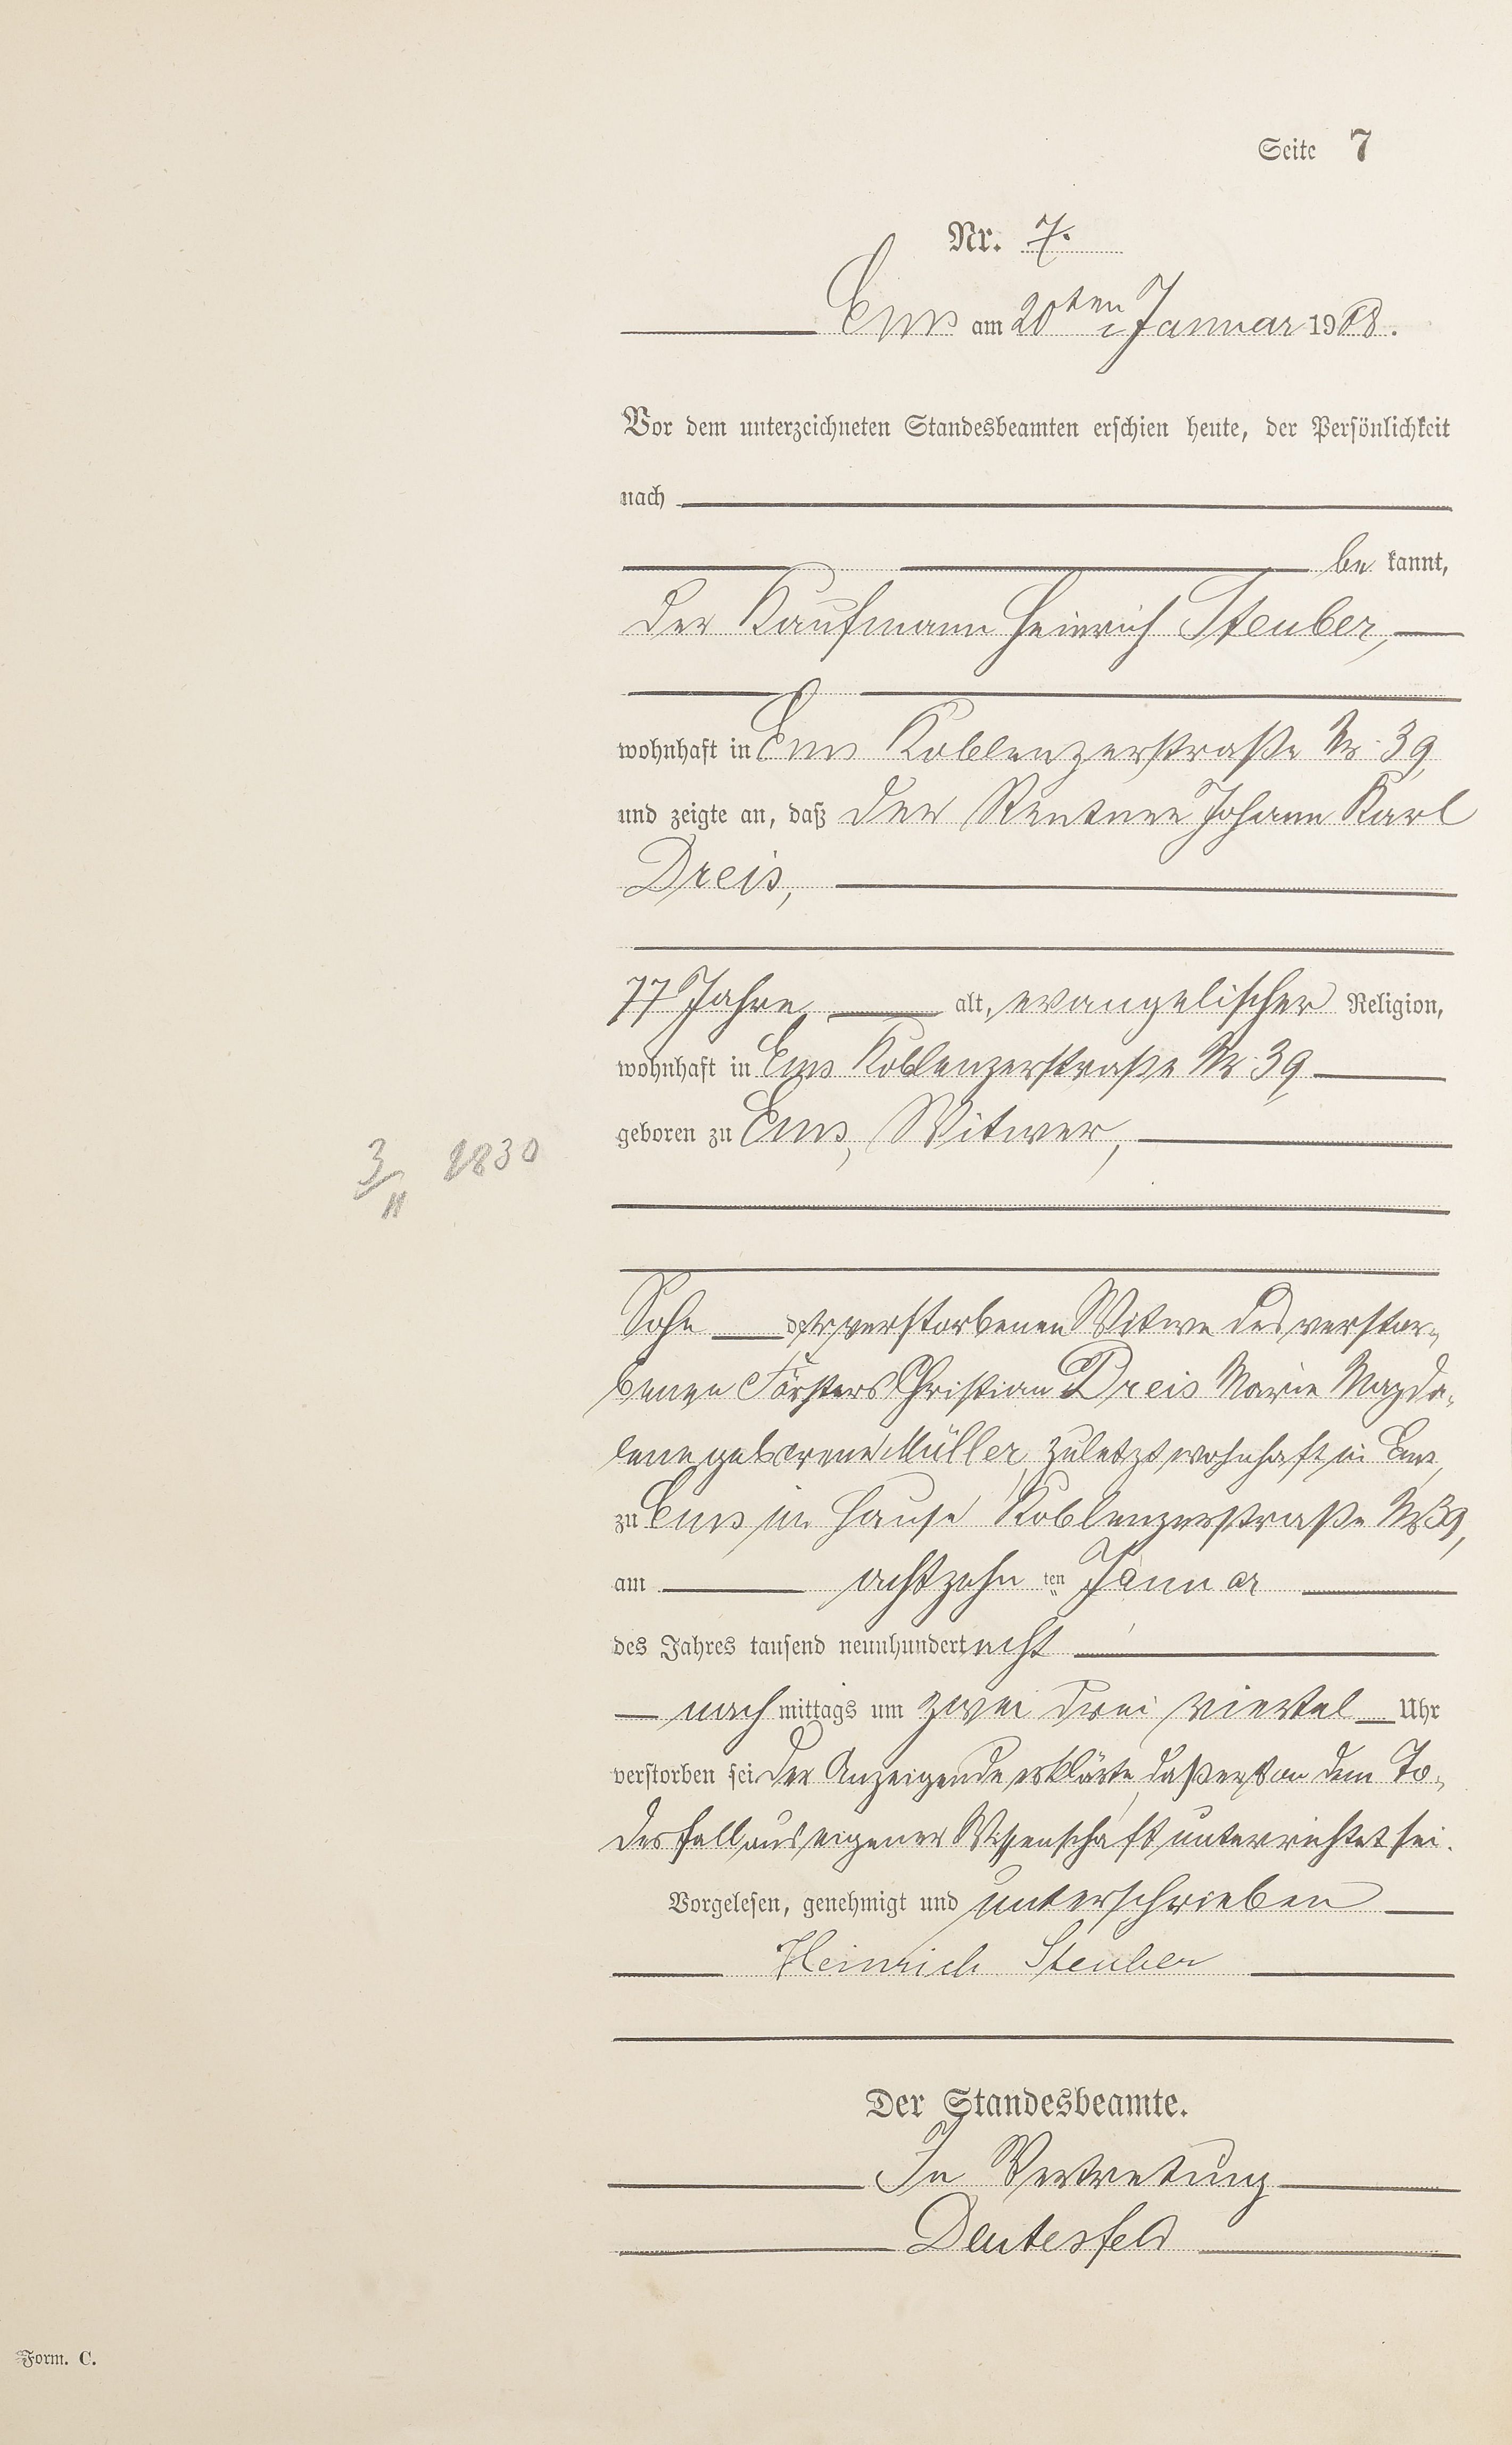 Seite 7
Nr. 7.
Ems am 20ten Januar 1908.
Vor dem unterzeichneten Standesbeamten erschien heute, der Persönlichkeit
nach
be kannt,
der Kaufmann Heinrich Steuber,
wohnhaft in Ems Koblenzerstraße Nr. 39
und zeigte an, daß der Rentner Johann Karl
Dreis,
77 Jahre alt, evangelischer Religion,
wohnhaft in Ems Koblenzerstraße Nr. 39
geboren zu Ems, Witwer,
3/11 1830
Sohn der verstorbenen Witwe des verstor-
benen Försters Christian Dreis Marie Magda-
lene geborene Müller, zuletzt wohnhaft in Ems,
zu Ems im Hause Koblenzerstraße Nr 39,
am achtzehn ten Januar
des Jahres tausend neunhundert acht
nach mittags um zwei drei viertel Uhr
verstorben sei. Der Anzeigende erklärte, daß er von dem To-
desfall aus eigener Wissenschaft unterrichtet sei.
Vorgelesen, genehmigt und unterschrieben
Heinrich Steuber
Der Standesbeamte.
In Vertretung
Deutesfeld
Form. C.